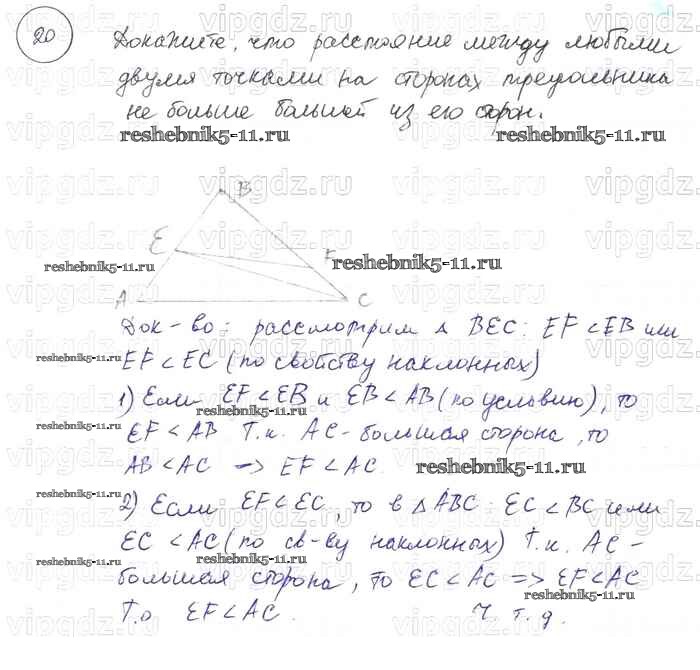 20
Докажите, что расстояние между любыми
двумя точками на сторонах треугольника
не больше большей из его сторон.
reshebnik5-11.ru reshebnik5-11.ru
B
E
F
reshebnik5-11.ru reshebnik5-11.ru
A C
Док-во: рассмотрим △ BEC: EF < EB или
reshebnik5-11.ru
EF < EC (по свойству наклонных)
1) Если EF < EB и EB < AB (по условию), то
reshebnik5-11.ru
reshebnik5-11.ru
EF < AB Т.к. AC - большая сторона, то
AB < AC → EF < AC.
reshebnik5-11.ru
reshebnik5-11.ru
2) Если EF < EC, то в △ABC: EC < BC или
EC < AC (по св-ву наклонных) Т.к. AC -
reshebnik5-11.ru
большая сторона, то EC < AC => EF < AC
reshebnik5-11.ru
Т.о EF < AC. Ч.т.д.
reshebnik5-11.ru